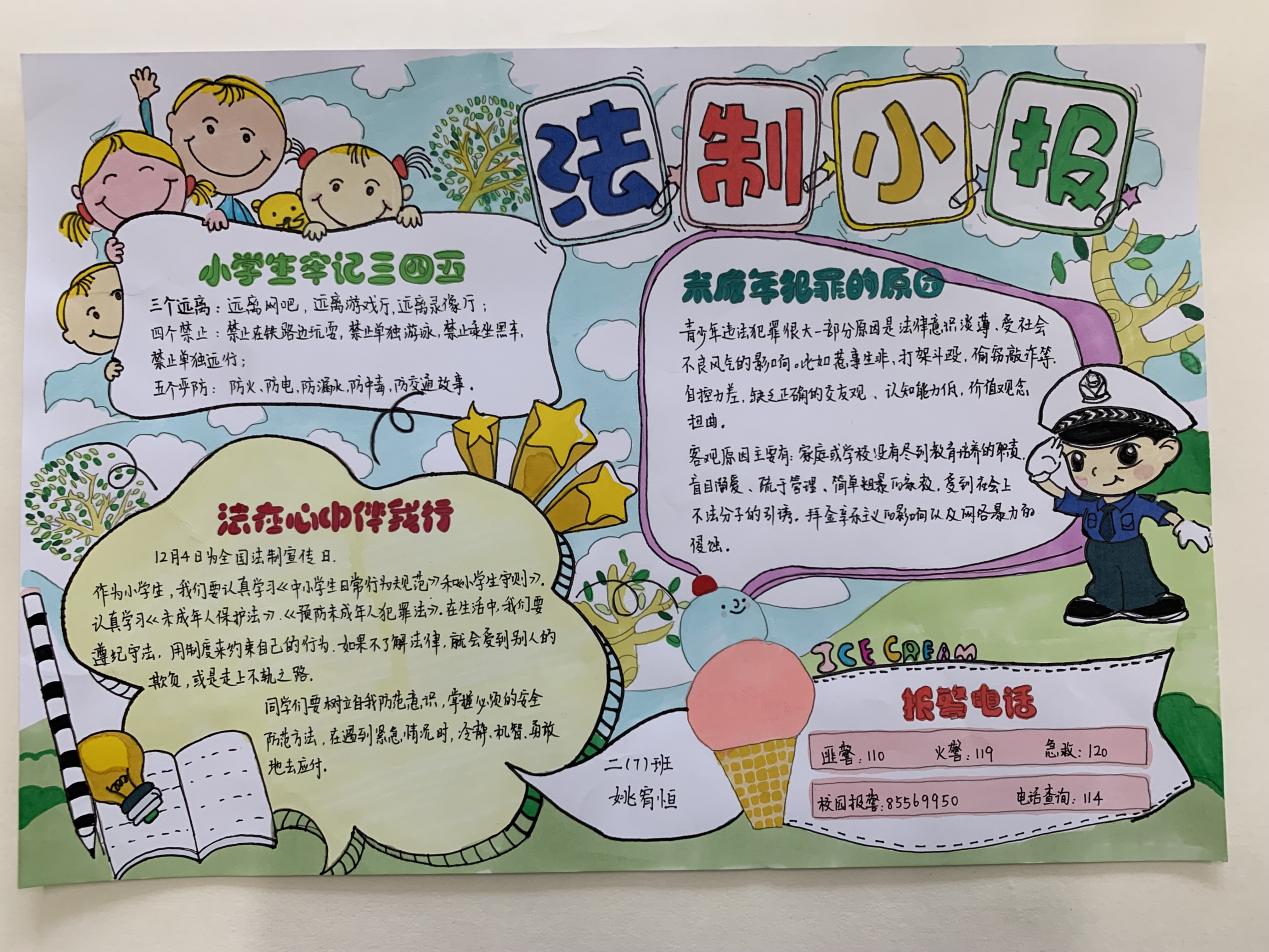 法制小报
小学生牢记三四五
三个远离：远离网吧，远离游戏厅，远离录像厅；
四个禁止：禁止在铁路边玩耍，禁止单独游泳，禁止乘坐黑车，
禁止单独远行；
五个严防：防火、防电、防溺水、防中毒、防交通故事。
未成年犯罪的原因
青少年违法犯罪很大一部分原因是法律意识淡薄，受社会
不良风气的影响。比如惹事生非，打架斗殴，偷窃敲诈等.
自控力差，缺乏正确的交友观、认知能力低，价值观念
扭曲。
客观原因主要有：家庭或学校没有尽到教育培养的职责，
盲目溺爱、疏于管理、简单粗暴的家教，受到社会上
不法分子的引诱。拜金享乐主义的影响以及网络暴力的
侵蚀。
法在心中伴我行
12月4日为全国法制宣传日.
作为小学生，我们要认真学习《中小学生日常行为规范》和《小学生守则》.
认真学习《未成年人保护法》.《预防未成年人犯罪法》.在生活中，我们要
遵纪守法，用制度来约束自己的行为.如果不了解法律，就会受到别人的
欺负，或是走上不轨之路.
同学们要树立自我防范意识，掌握必须的安全
防范方法，在遇到紧急情况时，冷静、机智、勇敢
地去应付.
ICE CREAM
二(7)班
姚宥恒
报警电话
匪警：110 火警：119 急救：120
校园报警：85569950 电话查询：114